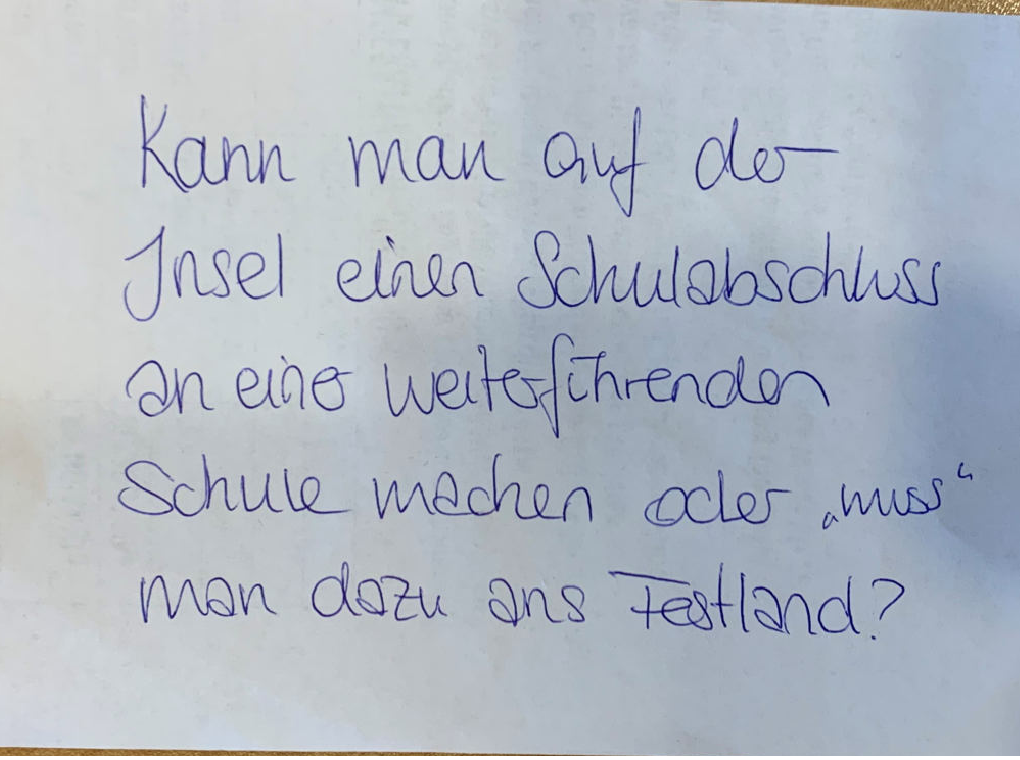 Kann man auf der
Insel einen Schulabschluss
an einer weiterführenden
Schule machen oder „muss“
man dazu ans Festland?